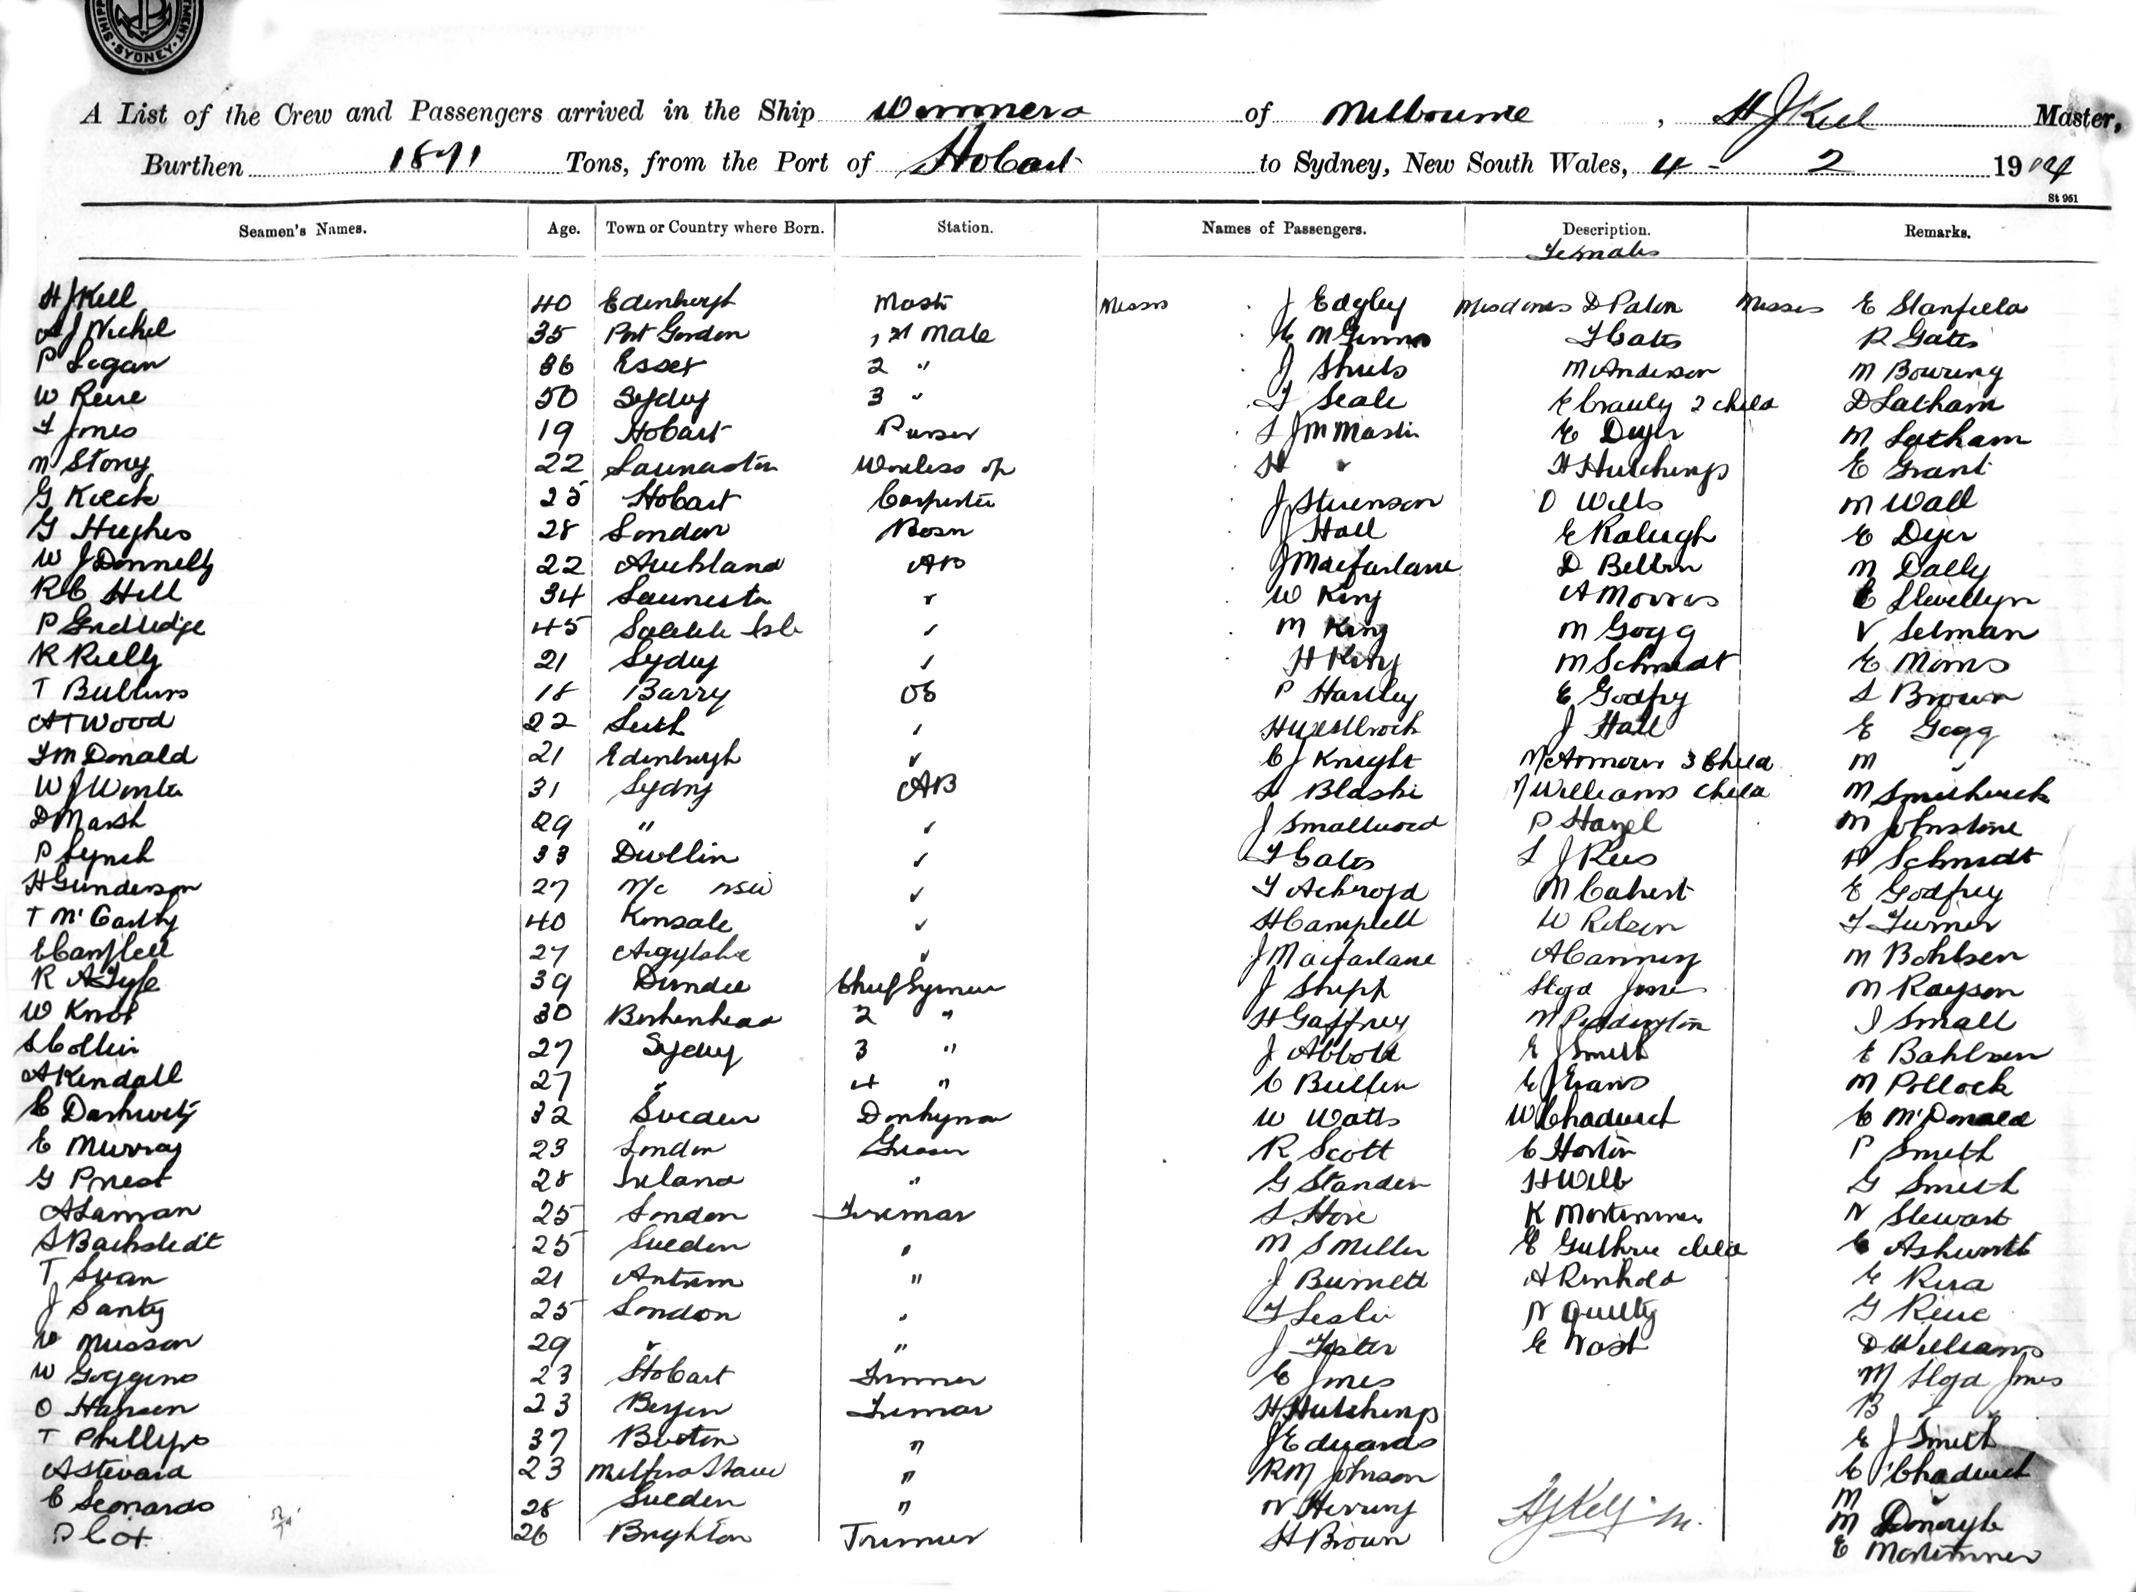 SHIPP MENT SYDNEY
A List of the Crew and Passengers arrived in the Ship Wimmera of Melbourne , H J Kell Master,
Burthen 1871 Tons, from the Port of Hobart to Sydney, New South Wales, 4 - 2 1914
St 961
Seamen's Names. Age. Town or Country where Born. Station. Names of Passengers. Description. Remarks.
Females
H J Kell 40 Edinburgh Mastr Messrs J Edgley Mesdames D Paton Misses E Stanfield
A J Nichol 35 Port Gordon 1st Mate E McGinnis F Cato R Gates
P Logan 36 Essex 2 " J Shiels M Anderson M Bowring
W Reise 50 Sydney 3 " F Seale E Crawly 2 child D Latham
F Jones 19 Hobart Purser S J M Master E Dyer M Latham
N Stony 22 Launceston Wireless op H " H Hutchings E Grant
G Kieck 25 Hobart Carpenter J Stevenson O Wills M Wall
G Hughes 28 London Bosn J Hall E Raleigh E Dyer
W J Donnelly 22 Auckland AB J Macfarlane D Bellion M Dally
R C Hill 34 Launceston " W King A Morris E Llewellyn
P 45 " M King M Gogg V Selman
R Rielly 21 Sydney " H King M Schmidt E Morris
T 18 Barry OS P Hartley E Godfry L Brown
A T Wood 22 Leith " H Westbrook J Hall E Gogg
F McDonald 21 Edinburgh " C J Knight N Armour 3 Child M "
W J Winter 31 Sydny AB S Blaski N Williams child M Smithwick
D Marsh 29 " " J Smallwood P Hazel M Johnstone
P Lynch 33 Dublin " F Cato L J Rees H Schmidt
H Gunderson 27 N/c NSW " F Ackroyd M Calvert E Godfrey
T McCarthy 40 Kinsale " H Campbell W Ritson F Turner
E Campbell 27 Argylshire " J Macfarlane A Canning M Bohlsen
R A Fyfe 39 Dundee Chief Engineer J Shepp Lloyd Jones M Rayson
W Knox 30 Birkenhead 2 " H Gaffney N Peddington J Small
S Collier 27 Sydney 3 " J Abbott E J Smith E Bahlsen
A Kendall 27 " 4 " C Bullen E J Evans M Pollock
C 32 Sweden Donkyman W Watts W Chadwick C McDonald
E Murray 23 London Greaser R Scott C Horton P Smith
G Priest 28 Ireland " G Standen H Webb G Smith
A Laman 25 London Fireman S Hore K Mortimmer N Stewart
S Backstedt 25 Sweden " M S Miller E Guthrie child E Ashworth
T Swan 21 Antrim " J Burnett A Renhold E Rira
J Santy 25 London " F Leslie N Quilty G Reise
W Musson 29 " " J Foster E Nash D Williams
W Goggins 23 Hobart Trimmer E Jones M Lloyd Jones
O Hansen 23 Bergen Fireman H Hutchings B " "
T Phillips 37 Buxton " J Edwards E J Smith
A Steward 23 Milford Haven " R M Johnson C Chadwick
C Leonards 28 Sweden " N Herring M "
P Cox 26 Brighton Trimmer H Brown H J Kell M. M
E Mortimmer